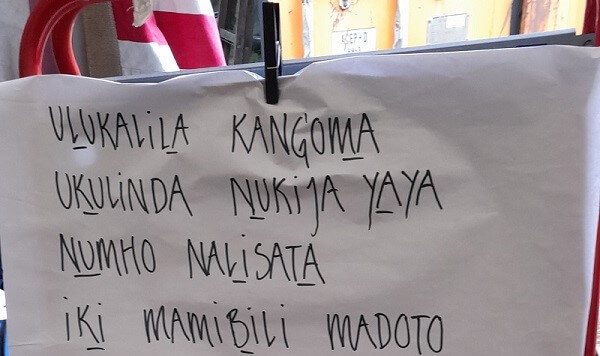 ULUKALILA KANG'OMA
UKULINDA NUKIJA YAYA
NUMHO NALISATA
IKI MAMIBILI MADOTO